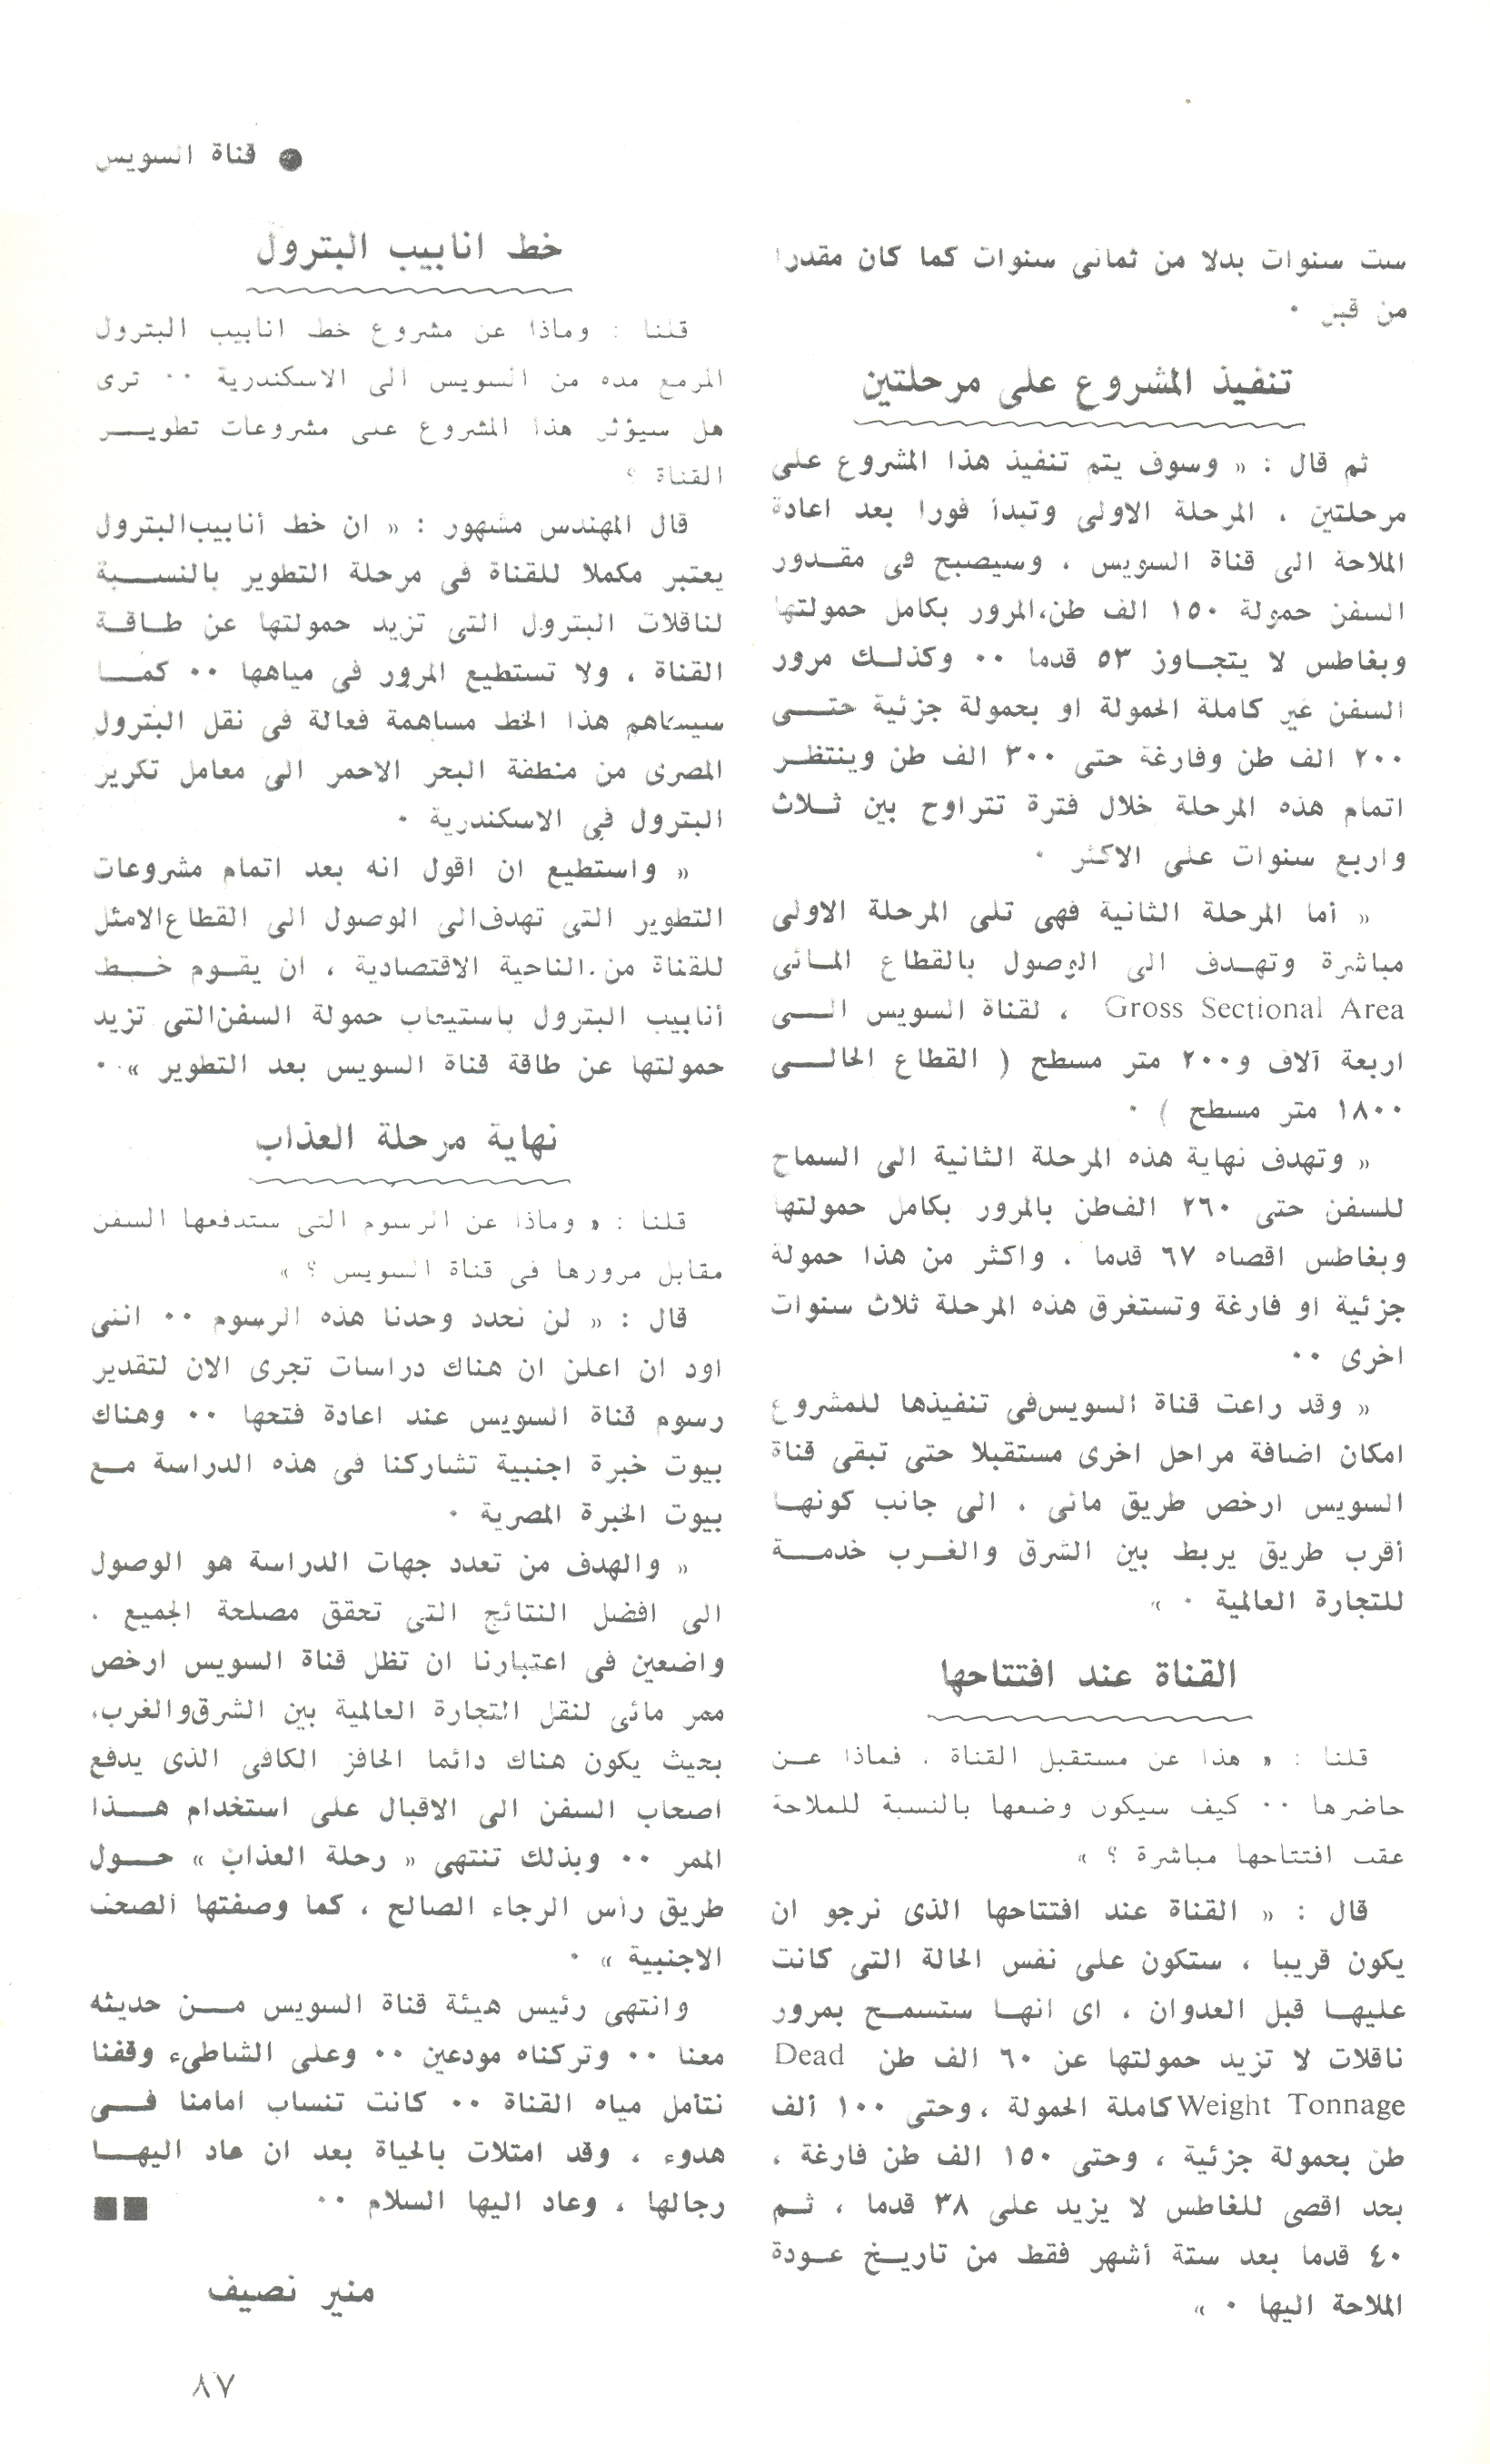 ● قناة السويس
ست سنوات بدلا من ثمانى سنوات كما كان مقدرا
من قبل ٠
تنفيذ المشروع على مرحلتين
ثم قال : « وسوف يتم تنفيذ هذا المشروع على
مرحلتين ، المرحلة الاولى وتبدأ فورا بعد اعادة
الملاحة الى قناة السويس ، وسيصبح فى مقـدور
السفن حمولة ١٥٠ الف طن،المرور بكامل حمولتها
وبغاطس لا يتجـاوز ٥٣ قدما ٠٠ وكذلـك مرور
السفن غير كاملة الحمولة او بحمولة جزئية حتـــى
٢٠٠ الف طن وفارغة حتى ٣٠٠ الف طن وينتظـر
اتمام هذه المرحلة خلال فترة تتراوح بين ثـلاث
واربع سنوات على الاكثر ٠
« أما المرحلة الثانية فهى تلى المرحلة الاولى
مباشرة وتهـدف الى الوصول بالقطاع المـائى
Gross Sectional Area ، لقناة السويس الـــى
اربعة آلاف و٢٠٠ متر مسطح ( القطاع الحالـــى
١٨٠٠ متر مسطح ) ٠
« وتهدف نهاية هذه المرحلة الثانية الى السماح
للسفن حتى ٢٦٠ الف‌طن بالمرور بكامل حمولتها
وبغاطس اقصاه ٦٧ قدما ، واكثر من هذا حمولة
جزئية او فارغة وتستغرق هذه المرحلة ثلاث سنوات
اخرى ٠٠
« وقد راعت قناة السويس‌فى تنفيذها للمشروع
امكان اضافة مراحل اخرى مستقبلا حتى تبقى قناة
السويس ارخص طريق مائى ، الى جانب كونهـا
أقرب طريق يربط بين الشرق والغـرب خدمـــة
للتجارة العالمية ٠ »
القناة عند افتتاحها
قلنا : « هذا عن مستقبل القناة ، فماذا عـن
حاضرها ٠٠ كيف سيكون وضعها بالنسبة للملاحة
عقب افتتاحها مباشرة ؟ »
قال : « القناة عند افتتاحها الذى نرجو ان
يكون قريبا ، ستكون على نفس الحالة التى كانت
عليهـا قبل العدوان ، اى انهـا ستسمـح بمرور
ناقلات لا تزيد حمولتها عن ٦٠ الف طن Dead
Weight Tonnage كاملة الحمولة ، وحتى ١٠٠ ألف
طن بحمولة جزئية ، وحتى ١٥٠ الف طن فارغة ،
بحد اقصى للغاطس لا يزيد على ٣٨ قدما ، ثـم
٤٠ قدما بعد ستة أشهر فقط من تاريـخ عـودة
الملاحة اليها ٠ »
خط انابيب البترول
قلنا : وماذا عن مشروع خط انابيب البترول
المزمع مده من السويس الى الاسكندرية ٠٠ ترى
هل سيؤثر هذا المشروع على مشروعات تطويـــر
القناة ؟
قال المهندس مشهور : « ان خط أنابيب‌البترول
يعتبر مكملا للقناة فى مرحلة التطوير بالنســـبة
لناقلات البترول التى تزيد حمولتها عن طـاقـة
القناة ، ولا تستطيع المرور فى مياهها ٠٠ كمـــا
سيساهم هذا الخط مساهمة فعالة فى نقل البترول
المصرى من منطقة البحر الاحمر الى معامل تكرير
البترول فى الاسكندرية ٠
« واستطيع ان اقول انه بعد اتمام مشروعات
التطوير التى تهدف‌الى الوصول الى القطاع‌الامثل
للقناة من الناحية الاقتصادية ، ان يقـوم خـط
أنابيب البترول باستيعاب حمولة السفن‌التى تزيد
حمولتها عن طاقة قناة السويس بعد التطوير » ٠
نهاية مرحلة العذاب
قلنا : « وماذا عن الرسوم التى ستدفعها السفن
مقابل مرورها فى قناة السويس ؟ »
قال : « لن نحدد وحدنا هذه الرسوم ٠٠ اننى
اود ان اعلن ان هناك دراسات تجرى الان لتقدير
رسوم قناة السويس عند اعادة فتحها ٠٠ وهناك
بيوت خبرة اجنبية تشاركنا فى هذه الدراسة مـع
بيوت الخبرة المصرية ٠
« والهدف من تعدد جهات الدراسة هو الوصول
الى افضل النتائج التى تحقق مصلحة الجميع ،
واضعين فى اعتبارنا ان تظل قناة السويس ارخص
ممر مائى لنقل التجارة العالمية بين الشرق‌والغرب،
بحيث يكون هناك دائما الحافز الكافى الذى يدفع
اصحاب السفن الى الاقبال على استخدام هـــذا
الممر ٠٠ وبذلك تنتهى « رحلة العذاب » حـول
طريق رأس الرجاء الصالح ، كما وصفتها الصحف
الاجنبية » ٠
وانتهى رئيس هيئة قناة السويس مـــن حديثه
معنا ٠٠ وتركناه مودعين ٠٠ وعلى الشاطىء وقفنا
نتأمل مياه القناة ٠٠ كانت تنساب امامنا فـــى
هدوء ، وقد امتلات بالحياة بعد ان عاد اليهـــا
رجالها ، وعاد اليها السلام ٠٠ ■■
منير نصيف
٨٧